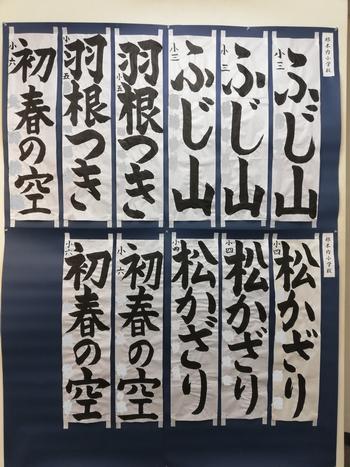 根木内小学校
ふじ山
小三
ふじ山
小三
ふじ山
小三
羽根つき
小五
羽根つき
小五
初春の空
小六
根木内小学校
松かざり
小四
松かざり
小四
松かざり
小四
初春の空
小六
初春の空
小六